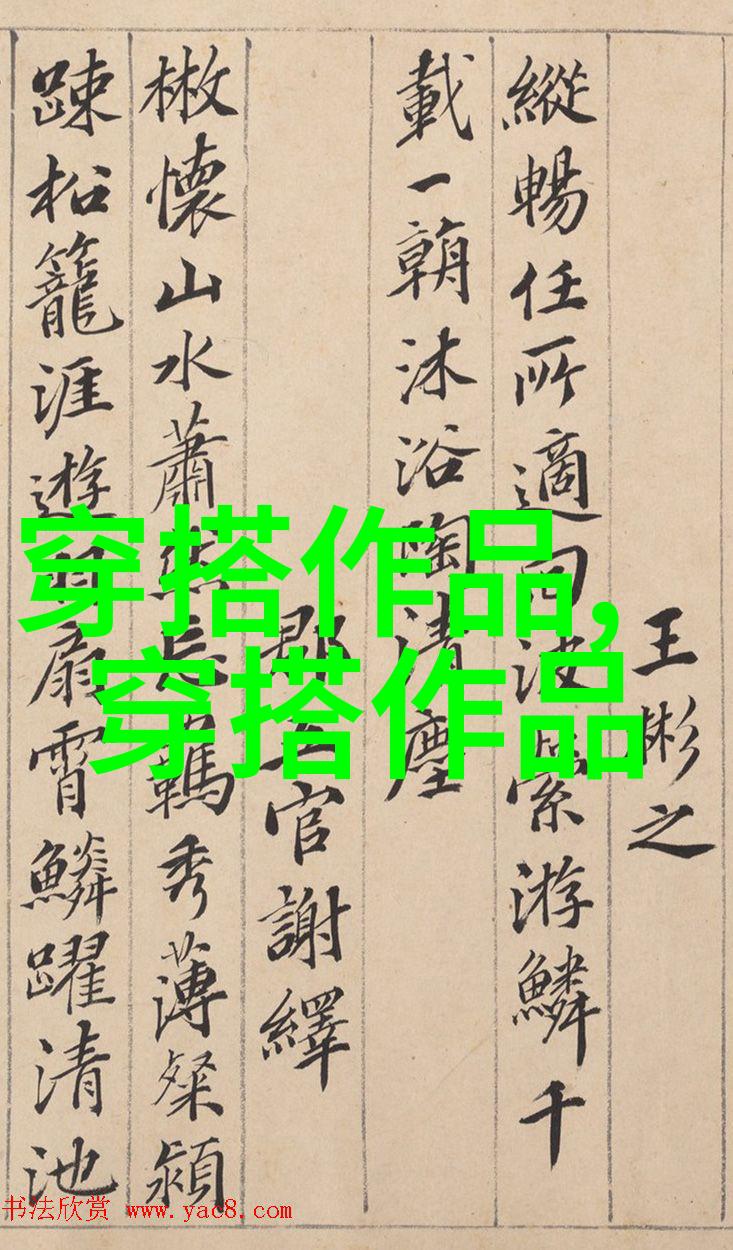 王彬之
縱暢任所適回波縈游鱗千
載一朝沐浴陶清塵
郡五官謝繹
㪔懷山水蕭然忘羈秀薄粲穎
踈松籠涯遊羽扇霄鱗躍清池
穿搭作品,
穿搭作品
书法欣赏 www.yac8.com